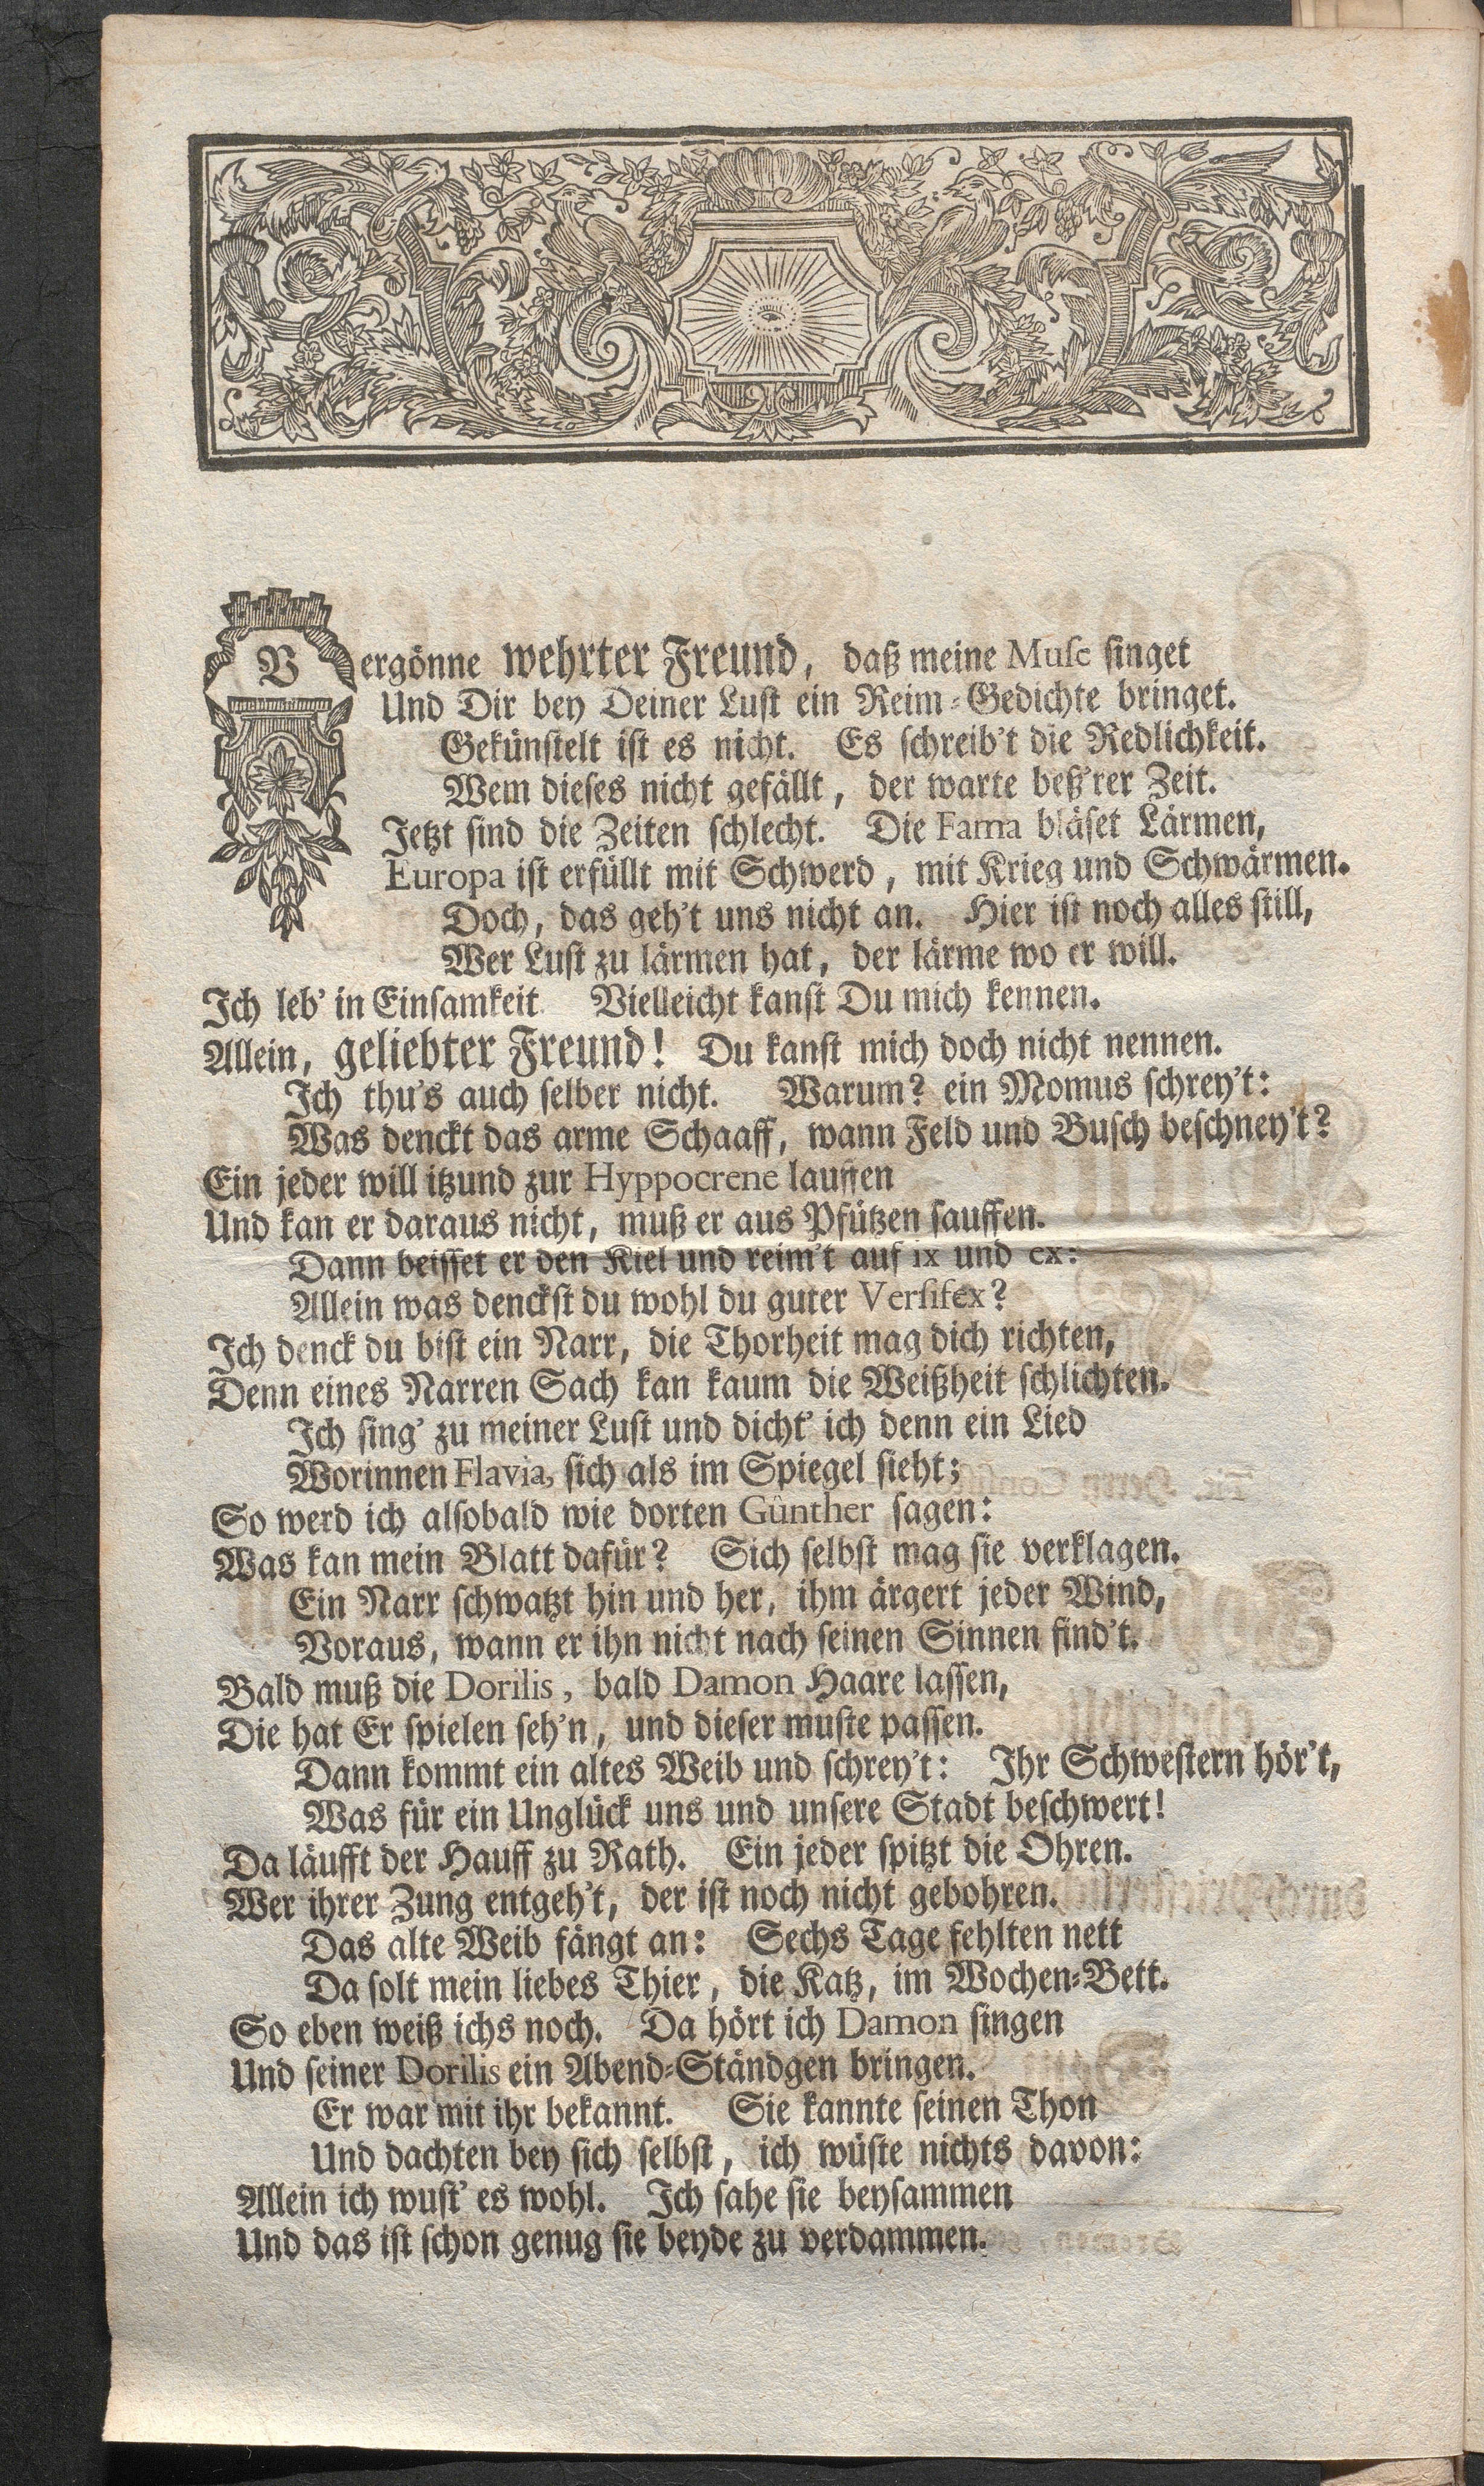 Vergönne wehrter Freund, daß meine Muse singet
Und Dir bey Deiner Lust ein Reim-Gedichte bringet.
Gekünstelt ist es nicht. Es schreib't die Redlichkeit.
Wem dieses nicht gefällt, der warte beß'rer Zeit.
Jetzt sind die Zeiten schlecht. Die Fama bläset Lärmen,
Europa ist erfüllt mit Schwerd, mit Krieg und Schwärmen.
Doch, das geh't uns nicht an. Hier ist noch alles still,
Wer Lust zu lärmen hat, der lärme wo er will.
Ich leb' in Einsamkeit Vielleicht kanst Du mich kennen.
Allein, geliebter Freund! Du kanst mich doch nicht nennen.
Ich thu's auch selber nicht. Warum? ein Momus schrey't:
Was denckt das arme Schaaff, wann Feld und Busch beschney't?
Ein jeder will itzund zur Hyppocrene lauffen
Und kan er daraus nicht, muß er aus Pfützen sauffen.
Dann beisset er den Kiel und reim't auf ix und ex:
Allein was denckst du wohl du guter Versifex?
Ich denck du bist ein Narr, die Thorheit mag dich richten,
Denn eines Narren Sach kan kaum die Weißheit schlichten.
Ich sing' zu meiner Lust und dicht' ich denn ein Lied
Worinnen Flavia, sich als im Spiegel sieht;
So werd ich alsobald wie dorten Günther sagen:
Was kan mein Blatt dafür? Sich selbst mag sie verklagen.
Ein Narr schwatzt hin und her, ihm ärgert jeder Wind,
Voraus, wann er ihn nicht nach seinen Sinnen find't.
Bald muß die Dorilis, bald Damon Haare lassen,
Die hat Er spielen seh'n, und dieser muste passen.
Dann kommt ein altes Weib und schrey't: Ihr Schwestern hör't,
Was für ein Unglück uns und unsere Stadt beschwert!
Da läufft der Hauff zu Rath. Ein jeder spitzt die Ohren.
Wer ihrer Zung entgeh't, der ist noch nicht gebohren.
Das alte Weib fängt an: Sechs Tage fehlten nett
Da solt mein liebes Thier, die Katz, im Wochen-Bett.
So eben weiß ichs noch. Da hört ich Damon singen
Und seiner Dorilis ein Abend-Ständgen bringen.
Er war mit ihr bekannt. Sie kannte seinen Thon
Und dachten bey sich selbst, ich wüste nichts davon:
Allein ich wust' es wohl. Ich sahe sie beysammen
Und das ist schon genug sie beyde zu verdammen.